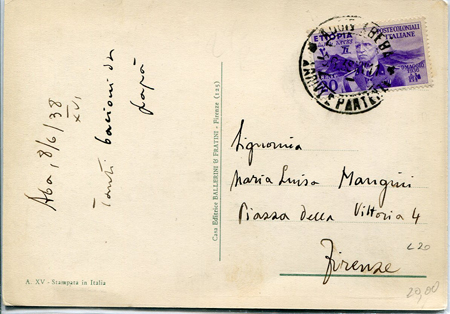 Aba, 8/6/38
XVI
Tanti bacioni da
papà
A. XV - Stampata in Italia
Casa Editrice BALLERINI & FRATINI - Firenze (125)
POSTE COLONIALI
ITALIANE
ETIOPIA
ADDIS ABEBA
ARRIVI E PARTENZE
Signorina
Maria Luisa Mangini
Piazza della Vittoria 4
Firenze
£20
20,00